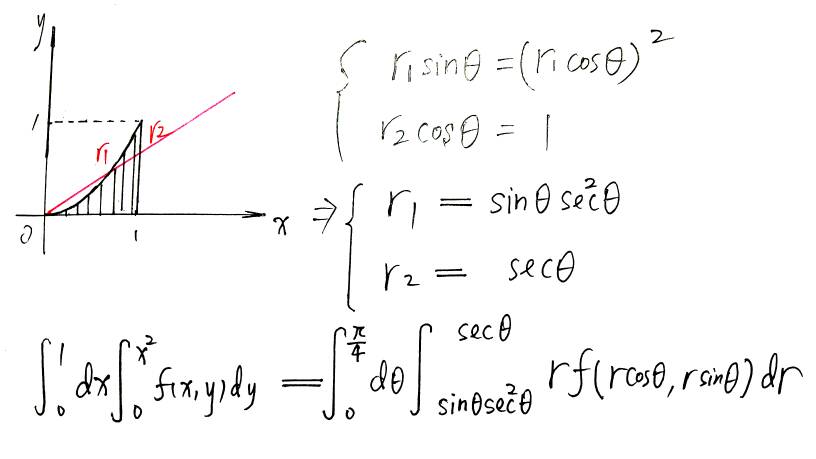 y
1
r1
r2
0
1
x
{ r₁ sinθ = (r₁ cosθ)²
r₂ cosθ = 1
⇒ { r₁ = sinθ sec²θ
r₂ = secθ
∫₀¹ dx ∫₀^{x²} f(x,y) dy = ∫₀^{π/4} dθ ∫_{sinθsec²θ}^{secθ} r f(rcosθ, rsinθ) dr